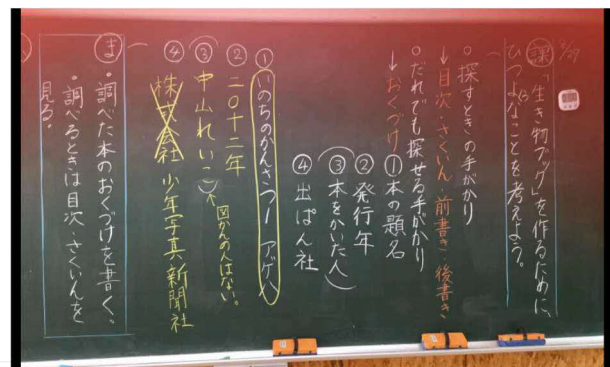 9/29
課 「生き物ブック」を作るために、
ひつようなことを考えよう。
○探すときの手がかり
↓目次・さくいん・前書き・後書き
○だれでも探せる手がかり
↓おくづけ ①本の題名
②発行年
③本をかいた人
④出ぱん社
① いのちのかんさつ1 アゲハ
② 二〇十二年
③ 中山れいこ
↑図かんの人はない。
④ 株式会社 少年写真新聞社
ま ・調べた本のおくづけを書く。
・調べるときは目次・さくいんを
見る。